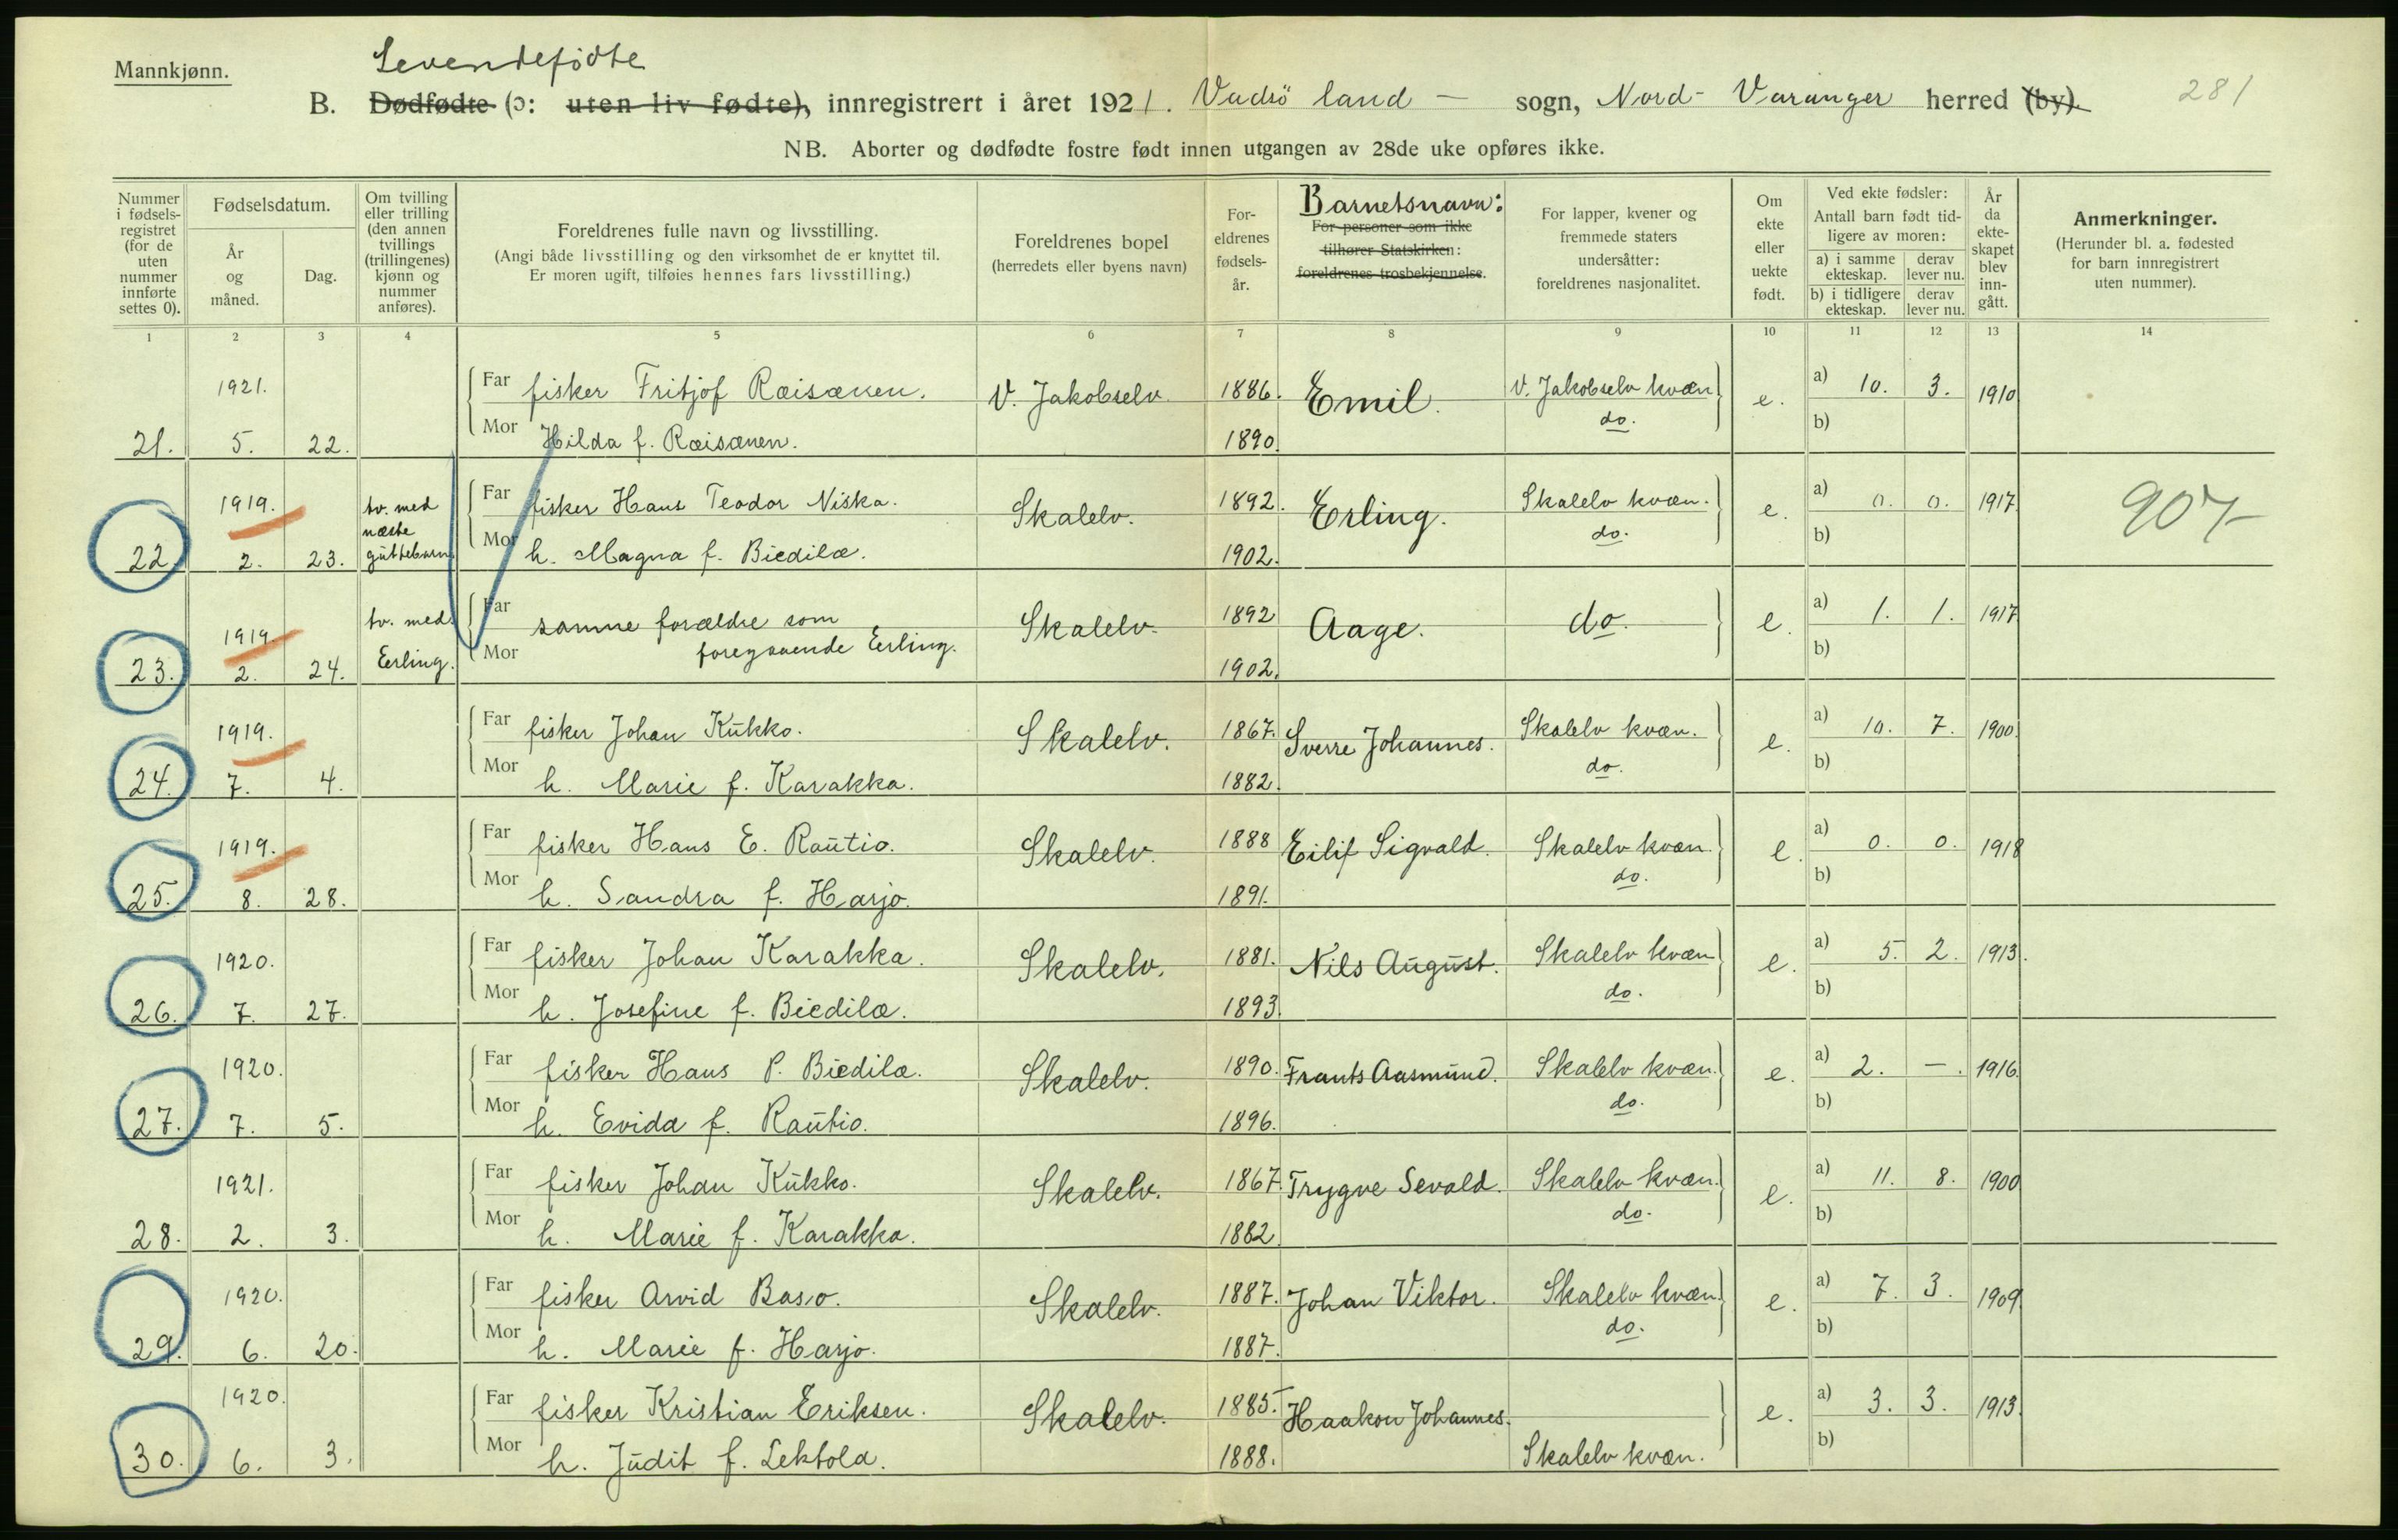 Mannkjønn.
Levendefødte
B. Dødfødte (ɔ: uten liv fødte), innregistrert i året 1921. Vadsö land — sogn, Nord-Varanger herred (by). 281
NB. Aborter og dødfødte fostre født innen utgangen av 28de uke opføres ikke.
Nummer i fødsels-registret (for de uten nummer innførte settes 0).
Fødselsdatum.
År og måned.
Dag.
Om tvilling eller trilling (den annen tvillings (trillingenes) kjønn og nummer anføres).
Foreldrenes fulle navn og livsstilling.
(Angi både livsstilling og den virksomhet de er knyttet til.
Er moren ugift, tilføies hennes fars livsstilling.)
Foreldrenes bopel
(herredets eller byens navn)
For-eldrenes fødsels-år.
Barnets navn:
For personer som ikke tilhører Statskirken: foreldrenes trosbekjennelse.
For lapper, kvener og fremmede staters undersåtter: foreldrenes nasjonalitet.
Om ekte eller uekte født.
Ved ekte fødsler:
Antall barn født tid-ligere av moren:
a) i samme ekteskap. derav lever nu.
b) i tidligere ekteskap. derav lever nu.
År da ekte-skapet blev inn-gått.
Anmerkninger.
(Herunder bl. a. fødested for barn innregistrert uten nummer).
1 2 3 4 5 6 7 8 9 10 11 12 13 14
1921. Far fisker Fritjof Ræisænen. V. Jakobselv 1886. Emil. V. Jakobselv kvæn e. a) 10. 3. 1910
21. 5. 22. Mor Hilda f. Ræisænen. 1890. do. b)
1919. tv. med næste guttebarn Far fisker Hans Teodor Niska. Skalelv. 1892. Erling. Skalelv kvæn. e. a) 0. 0. 1917. 907
22 2. 23. Mor h. Magna f. Biedilæ. 1902. do. b)
1919. tv. med Far samme forældre som Skalelv. 1892 Aage. do. e. a) 1. 1. 1917
23. 2. 24. Erling. Mor foregaaende Erling. 1902. b)
1919. Far fisker Johan Kukko. Skalelv. 1867. Sverre Johannes. Skalelv kvæn. e. a) 10. 7. 1900.
24. 7. 4. Mor h. Marie f. Karakka. 1882. do. b)
1919. Far fisker Hans E. Rautio. Skalelv. 1888 Eilif Sigvald. Skalelv kvæn. e. a) 0. 0. 1918
25. 8. 28. Mor h. Sandra f. Harjo. 1891. do. b)
1920. Far fisker Johan Karakka. Skalelv. 1881. Nils August. Skalelv kvæn e. a) 5. 2. 1913.
26. 7. 27. Mor h. Josefine f. Biedilæ. 1893. do. b)
1920. Far fisker Hans P. Biedilæ. Skalelv. 1890. Frants Aasmund. Skalelv kvæn. e. a) 2. —. 1916.
27. 7. 5. Mor h. Evida f. Rautio. 1896. do. b)
1921. Far fisker Johan Kukko. Skalelv. 1867. Trygve Sevald. Skalelv kvæn. e. a) 11. 8. 1900
28. 2. 3. Mor h. Marie f. Karakka. 1882. do. b)
1920. Far fisker Arvid Baso. Skalelv. 1887. Johan Viktor. Skalelv kvæn. e. a) 7. 3. 1909.
29. 6. 20. Mor h. Marie f. Harjo. 1887. do. b)
1920. Far fisker Kristian Eriksen. Skalelv. 1885. Haakon Johannes. e. a) 3. 3. 1913.
30. 6. 3. Mor h. Judit f. Lektola. 1888. Skalelv kvæn. b)